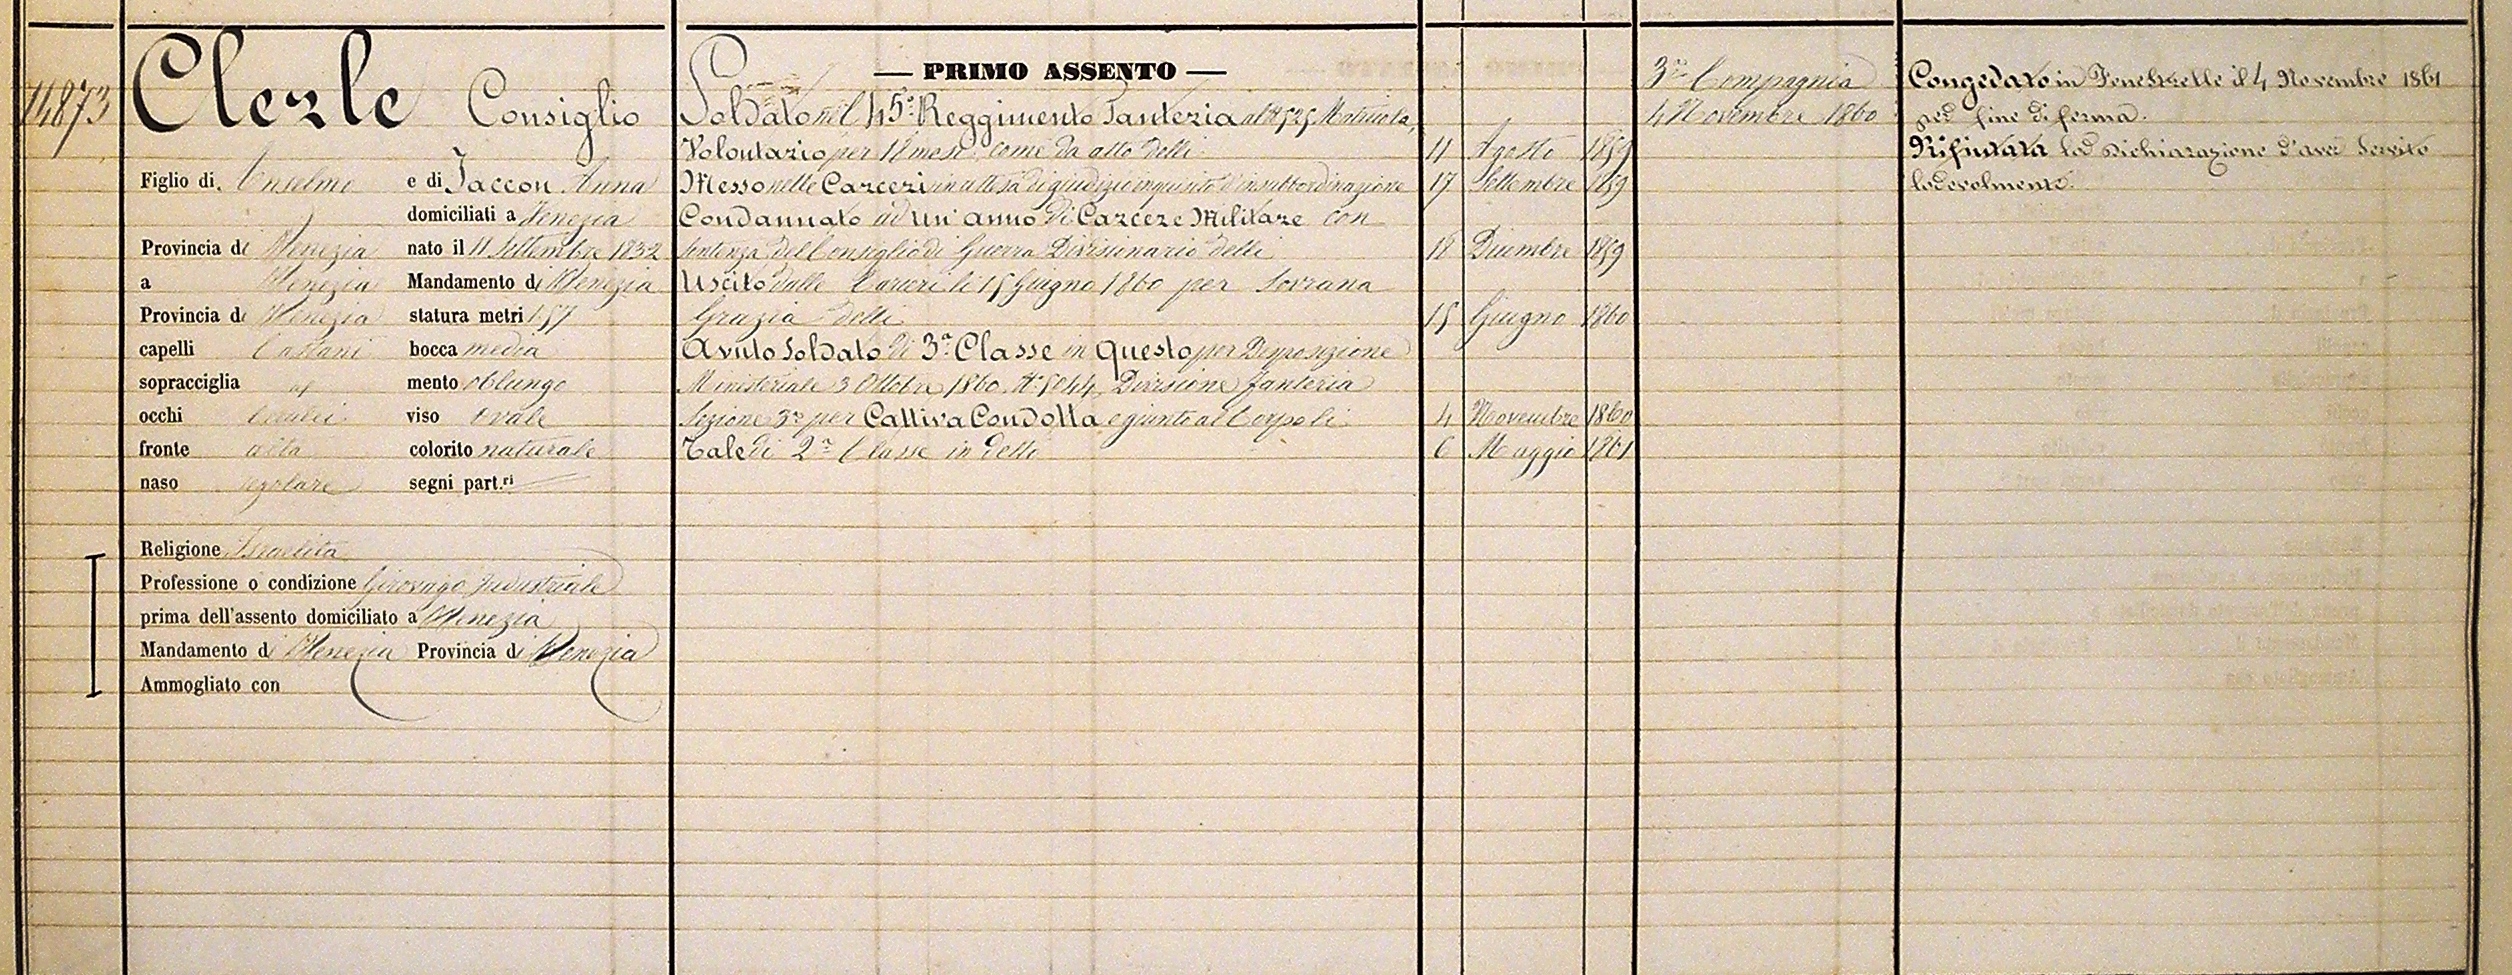 14873
Clerle Consiglio
Figlio di Anselmo e di Jaccon Anna
domiciliati a Venezia
Provincia di Venezia nato il 11 Settembre 1832
a Venezia Mandamento di Venezia
Provincia di Venezia statura metri 1.57
capelli Castani bocca media
sopracciglia id mento oblungo
occhi Cerulei viso ovale
fronte alta colorito naturale
naso regolare segni part.ri
Religione Israelita
Professione o condizione Girovago Industriale
prima dell'assento domiciliato a Venezia
Mandamento di Venezia Provincia di Venezia
Ammogliato con
— PRIMO ASSENTO —
Soldato nel 45° Reggimento Fanteria al N° 525 Matricola,
Volontario per 18 mesi, come da atto delli 11 Agosto 1859
Messo nelle Carceri in attesa di giudizio inquisito d'insubbordinazione 17 Settembre 1859
Condannato ad un'anno di Carcere Militare con
sentenza del Consiglio di Guerra Divisionario delli 18 Dicembre 1859
Uscito dalle Carceri li 15 Giugno 1860 per Sovrana
Grazia delli 15 Giugno 1860
Avuto Soldato di 3ª Classe in questo per Disposizione
Ministeriale 3 Ottobre 1860 N° 5044, Divisione fanteria
Sezione 3ª per Cattiva Condotta e giunto al Corpo li 4 Novembre 1860
Tale di 2ª Classe in detto 6 Maggio 1861
3ª Compagnia
4 Novembre 1860
Congedato in Fenestrelle il 4 Novembre 1861
per fine di ferma.
Rifiutata la dichiarazione d'aver servito
lodevolmente.